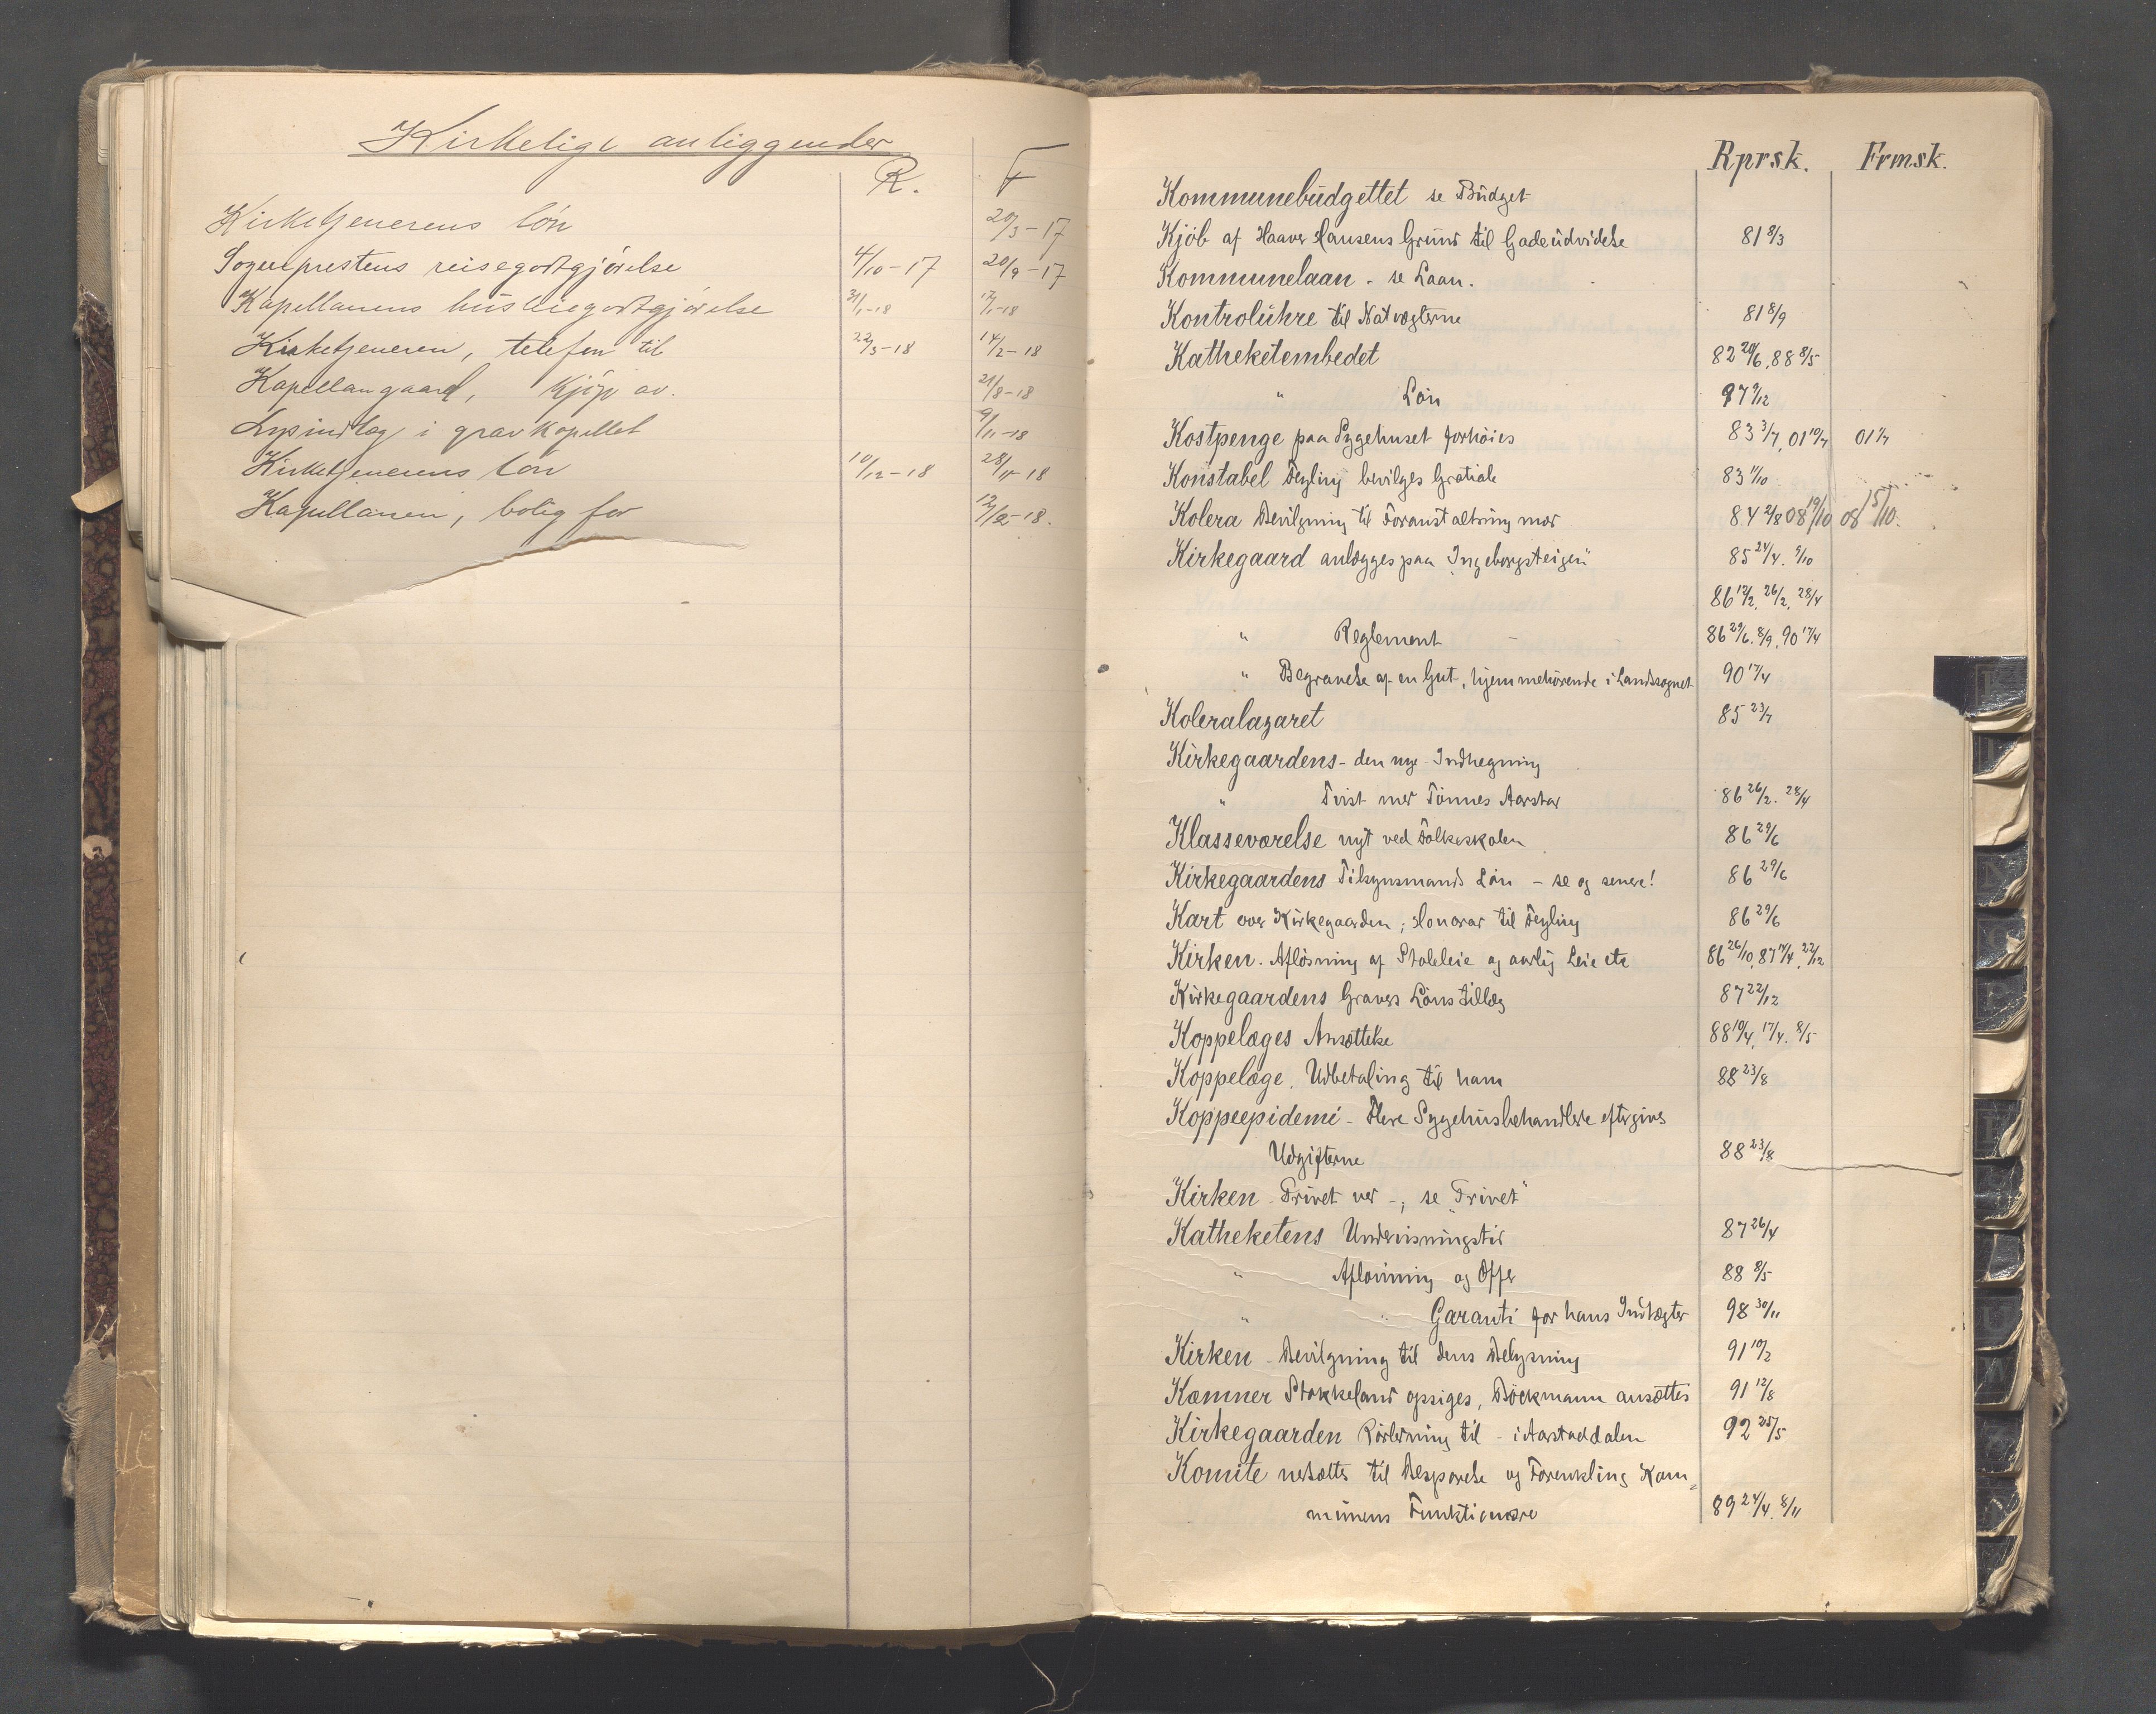 Kirkelige anliggender
R. F
Kirketjenerens lön 20/3-17
Sogneprestens reisegodtgjörelse 4/10-17 20/9-17
Kapellanens husleiegodtgjörelse 31/1-18 17/1-18
Kirketjeneren, telefon til 22/3-18 14/2-18
Kapellangaard, Kjöp av. 21/8-18
Lysindlæg i gravkapellet 9/11-18
Kirketjenerens lön 10/12-18 28/11-18
Kapellanen, bolig for 12/12-18.
Rprsk. Frmsk.
Kommunebudgettet se Budget
Kjöb af Haaver Hansens Grund til Gadeudvidelse 81 8/3
Kommunelaan - se Laan.
Kontroluhre til Natvægterne 81 8/9
Katheketembedet 82 20/6, 88 8/5
" Lön 97 9/12
Kostpenge paa Sygehuset forhöies 83 3/7, 01 10/7 01 1/7
Konstabel Feyling bevilges Gratiale 83 11/10
Kolera Bevilgning til Foranstaltning mod 84 2/8 08 19/10 08 15/10.
Kirkegaard anlægges paa "Ingeborgsteigen" 85 24/4. 9/10
86 12/2, 26/2, 28/4
" Reglement 86 29/6. 8/9, 90 17/4
" Begravelse af en Gut, hjemmehörende i Landssognet 90 17/4
Koleralazaret 85 23/7
Kirkegaardens - den nye - Indhegning
" Tvist med Tönnes Aarstad 86 26/2. 28/4
Klasseværelse nyt ved Folkeskolen 86 29/6
Kirkegaardens Tilsynsmands Lön - se og senere! 86 29/6
Kart over Kirkegaarden; Honorar til Feyling 86 29/6
Kirken. Aflösning af Stoleleie og aarlig Leie etc 86 26/10, 87 14/4, 22/12
Kirkegaardens Gravers Lönstillæg 87 22/12
Koppelæges Ansættelse 88 10/4, 17/4. 8/5
Koppelæge. Udbetaling til ham 88 23/8
Koppeepidemi - Flere Sygehusbehandlede eftergives
Udgifterne 88 23/8
Kirken - Privet ved -, se "Privet"
Katheketens Undervisningstid 87 26/4
" Aflönning og Offer 88 8/5
" " Garanti for hans Indtægter 98 30/11
Kirken - Bevilgning til dens Belysning 91 10/2
Kæmner Stokkeland opsiges, Böckmann ansættes 91 12/8
Kirkegaarden Rörledning til - i Aarstaddalen 92 25/5
Komite nedsættes til Besparelse og Forenkling Kom=
munens Funktionære 89 24/4. 8/11